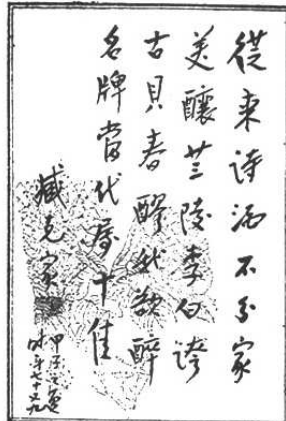 從来詩酒不分家
美釀兰陵李白誇
古貝春醪我欲醉
名牌當代属十佳
臧克家
甲子之夏
时年七十又九